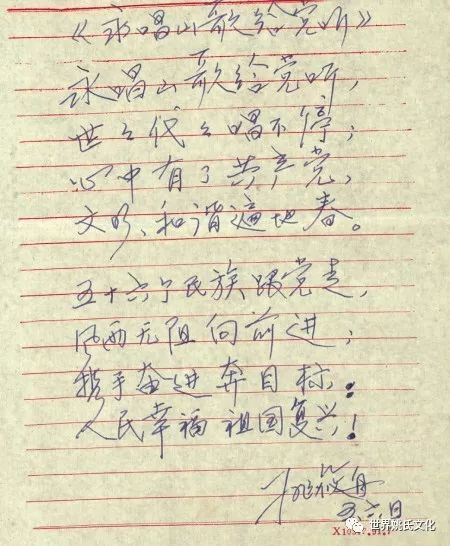 《永唱山歌给党听》
永唱山歌给党听,
世々代々唱不停;
心中有了共产党,
文明、和谐遍地春。
五十六个民族跟党走,
风雨无阻向前进;
携手奋进奔目标:
人民幸福祖国复兴!
姚筱舟
五.六.日
世界姚氏文化